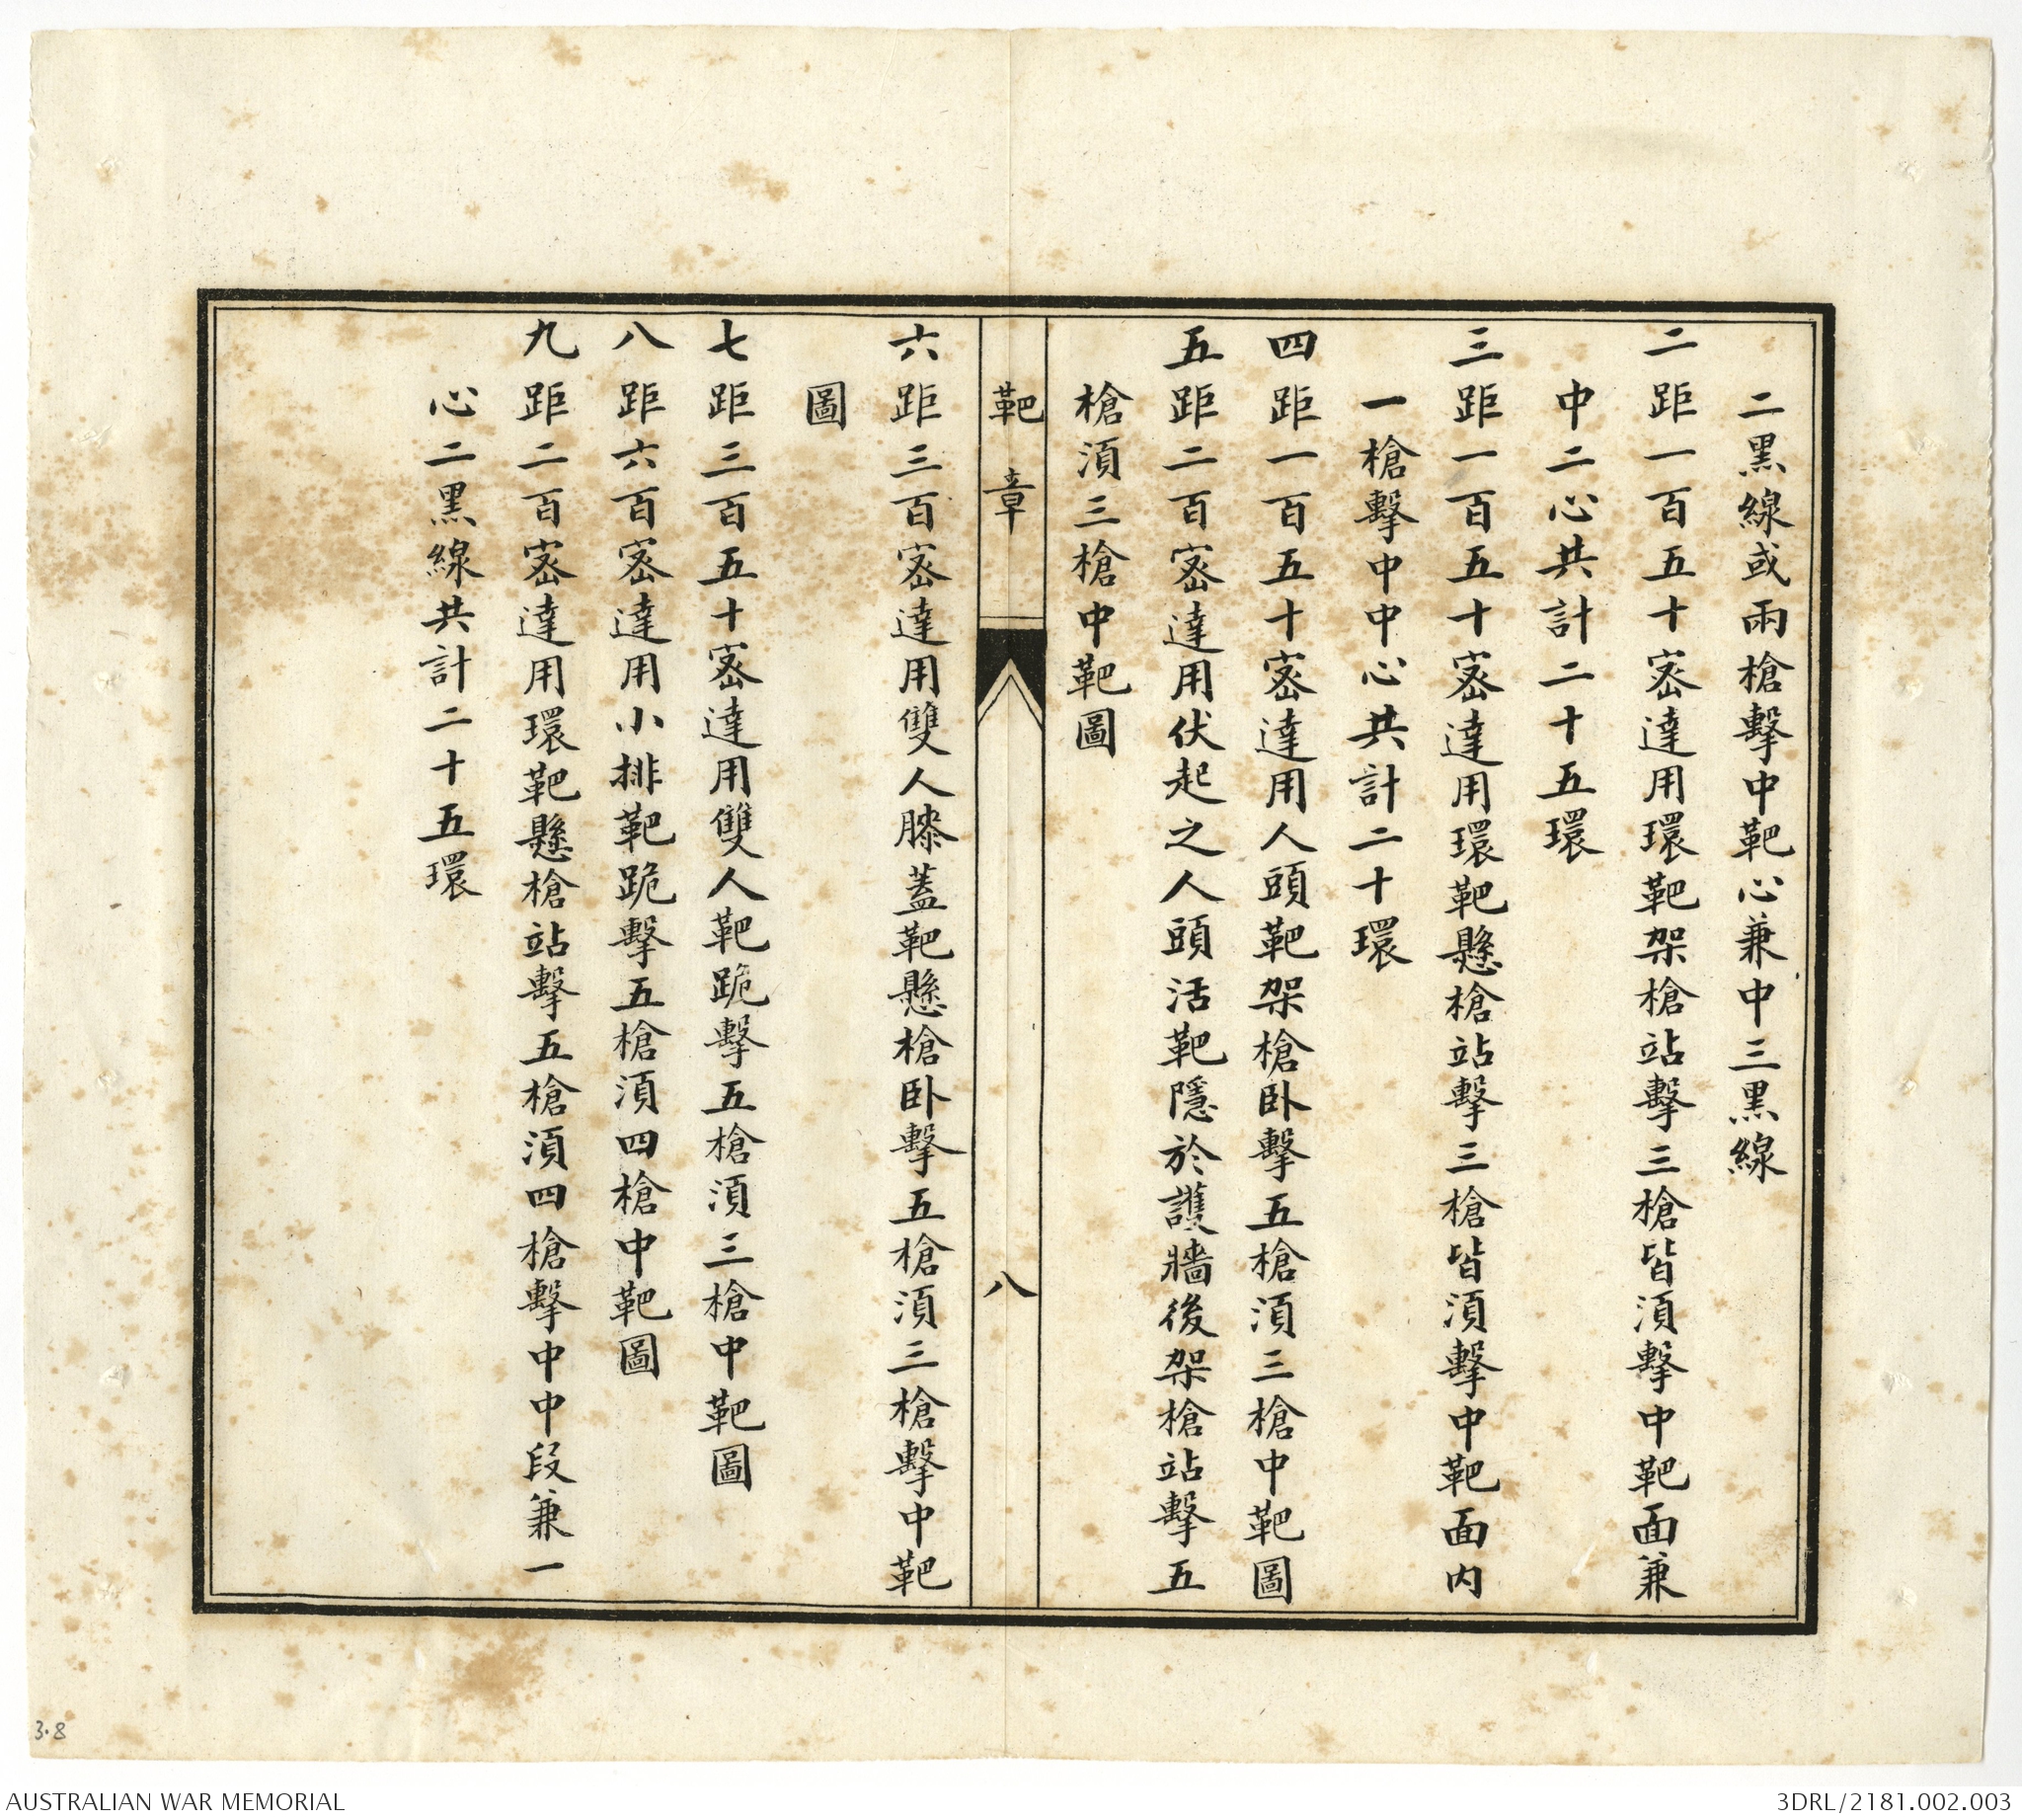 二黑線或兩槍擊中靶心兼中三黑線
二距一百五十宻達用環靶架槍站擊三槍皆湏擊中靶面兼
中二心共計二十五環
三距一百五十宻達用環靶懸槍站擊三槍皆湏擊中靶面内
一槍擊中中心共計二十環
四距一百五十宻達用人頭靶架槍卧擊五槍湏三槍中靶圖
五距二百宻達用伏起之人頭活靶隱於護牆後架槍站擊五
槍湏三槍中靶圖
靶章 八
六距三百宻達用雙人膝蓋靶懸槍卧擊五槍湏三槍擊中靶
圖
七距三百五十宻達用雙人靶跪擊五槍湏三槍中靶圖
八距六百宻達用小排靶跪擊五槍湏四槍中靶圖
九距二百宻達用環靶懸槍站擊五槍湏四槍擊中中段兼一
心二黑線共計二十五環
3.8
AUSTRALIAN WAR MEMORIAL
3DRL/2181.002.003